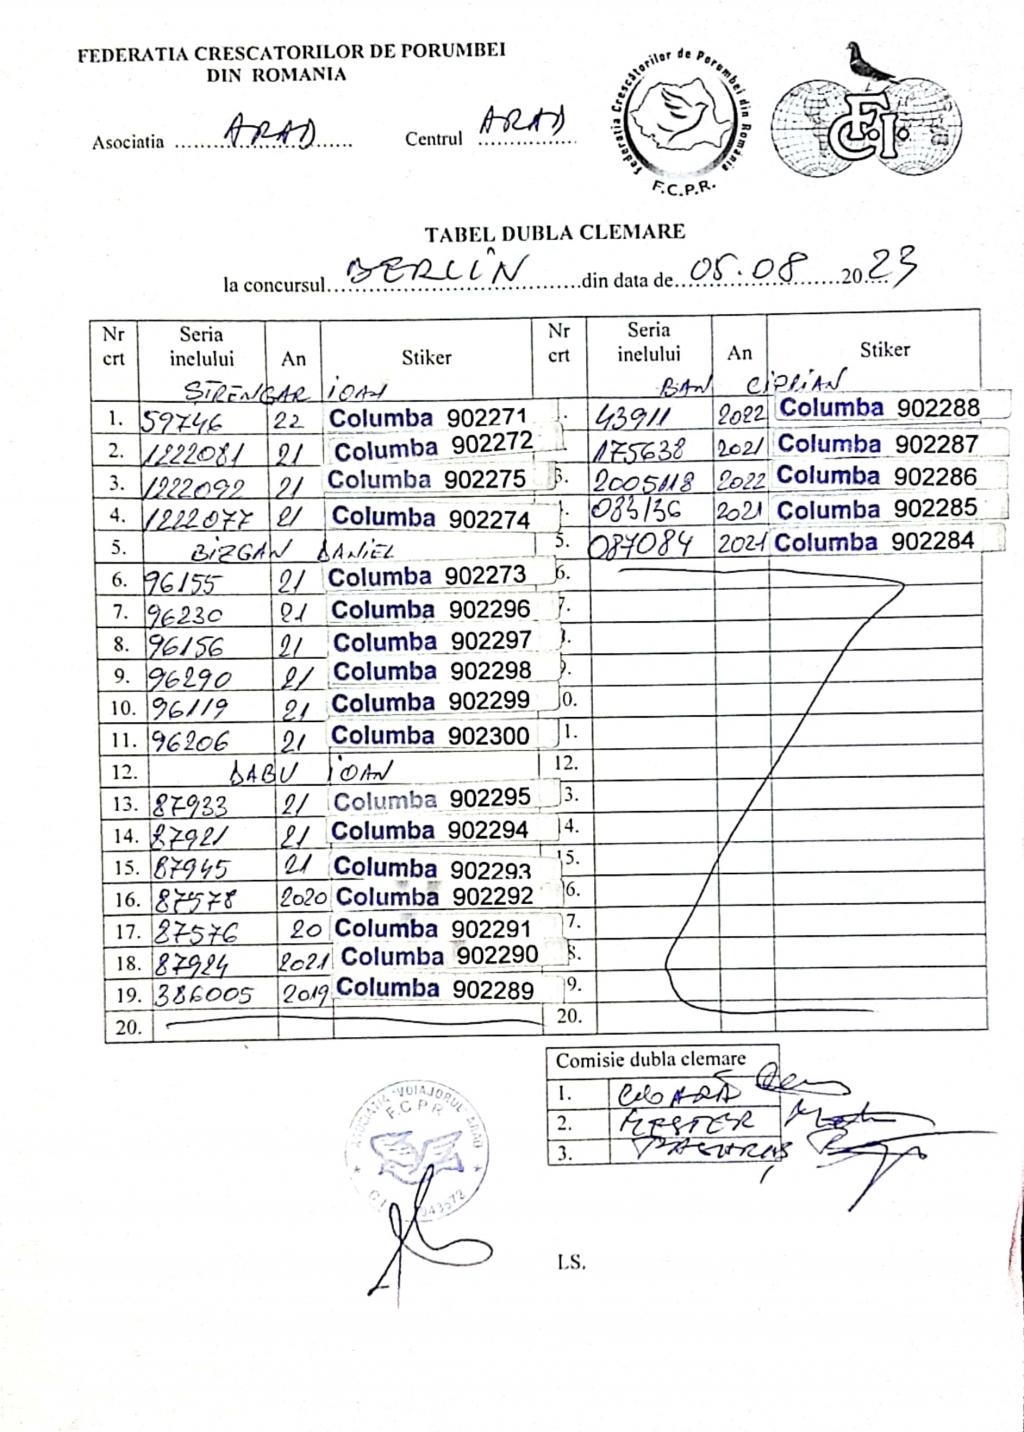 FEDERATIA CRESCATORILOR DE PORUMBEI
DIN ROMANIA
Asociatia ARAD Centrul ARAD
Federatia Crescătorilor de Porumbei din Romania
F.C.P.R.
F.C.I.
TABEL DUBLA CLEMARE
la concursul BERLIN din data de 05.08 2023
Nr crt Seria inelului An Stiker Nr crt Seria inelului An Stiker
ȘTRENGAR IOAN BAN CIPRIAN
1. 59746 22 Columba 902271 43911 2022 Columba 902288
2. 1222081 21 Columba 902272 175638 2021 Columba 902287
3. 1222092 21 Columba 902275 3. 2005118 2022 Columba 902286
4. 1222077 21 Columba 902274 083136 2021 Columba 902285
5. BIZGAN DANIEL 5. 087084 2021 Columba 902284
6. 96155 21 Columba 902273 6.
7. 96230 21 Columba 902296 7.
8. 96156 21 Columba 902297
9. 96290 21 Columba 902298 9.
10. 96119 21 Columba 902299 0.
11. 96206 21 Columba 902300 1.
12. DABU IOAN 12.
13. 87933 21 Columba 902295 3.
14. 87921 21 Columba 902294 14.
15. 87945 21 Columba 902293 15.
16. 87578 2020 Columba 902292 6.
17. 87576 20 Columba 902291 7.
18. 87924 2021 Columba 902290 8.
19. 386005 2019 Columba 902289 9.
20. 20.
Comisie dubla clemare
1.
2. MESTER
3.
ASOCIATIA "VOIAJORUL" ARAD
F.C.P.R.
L.S.